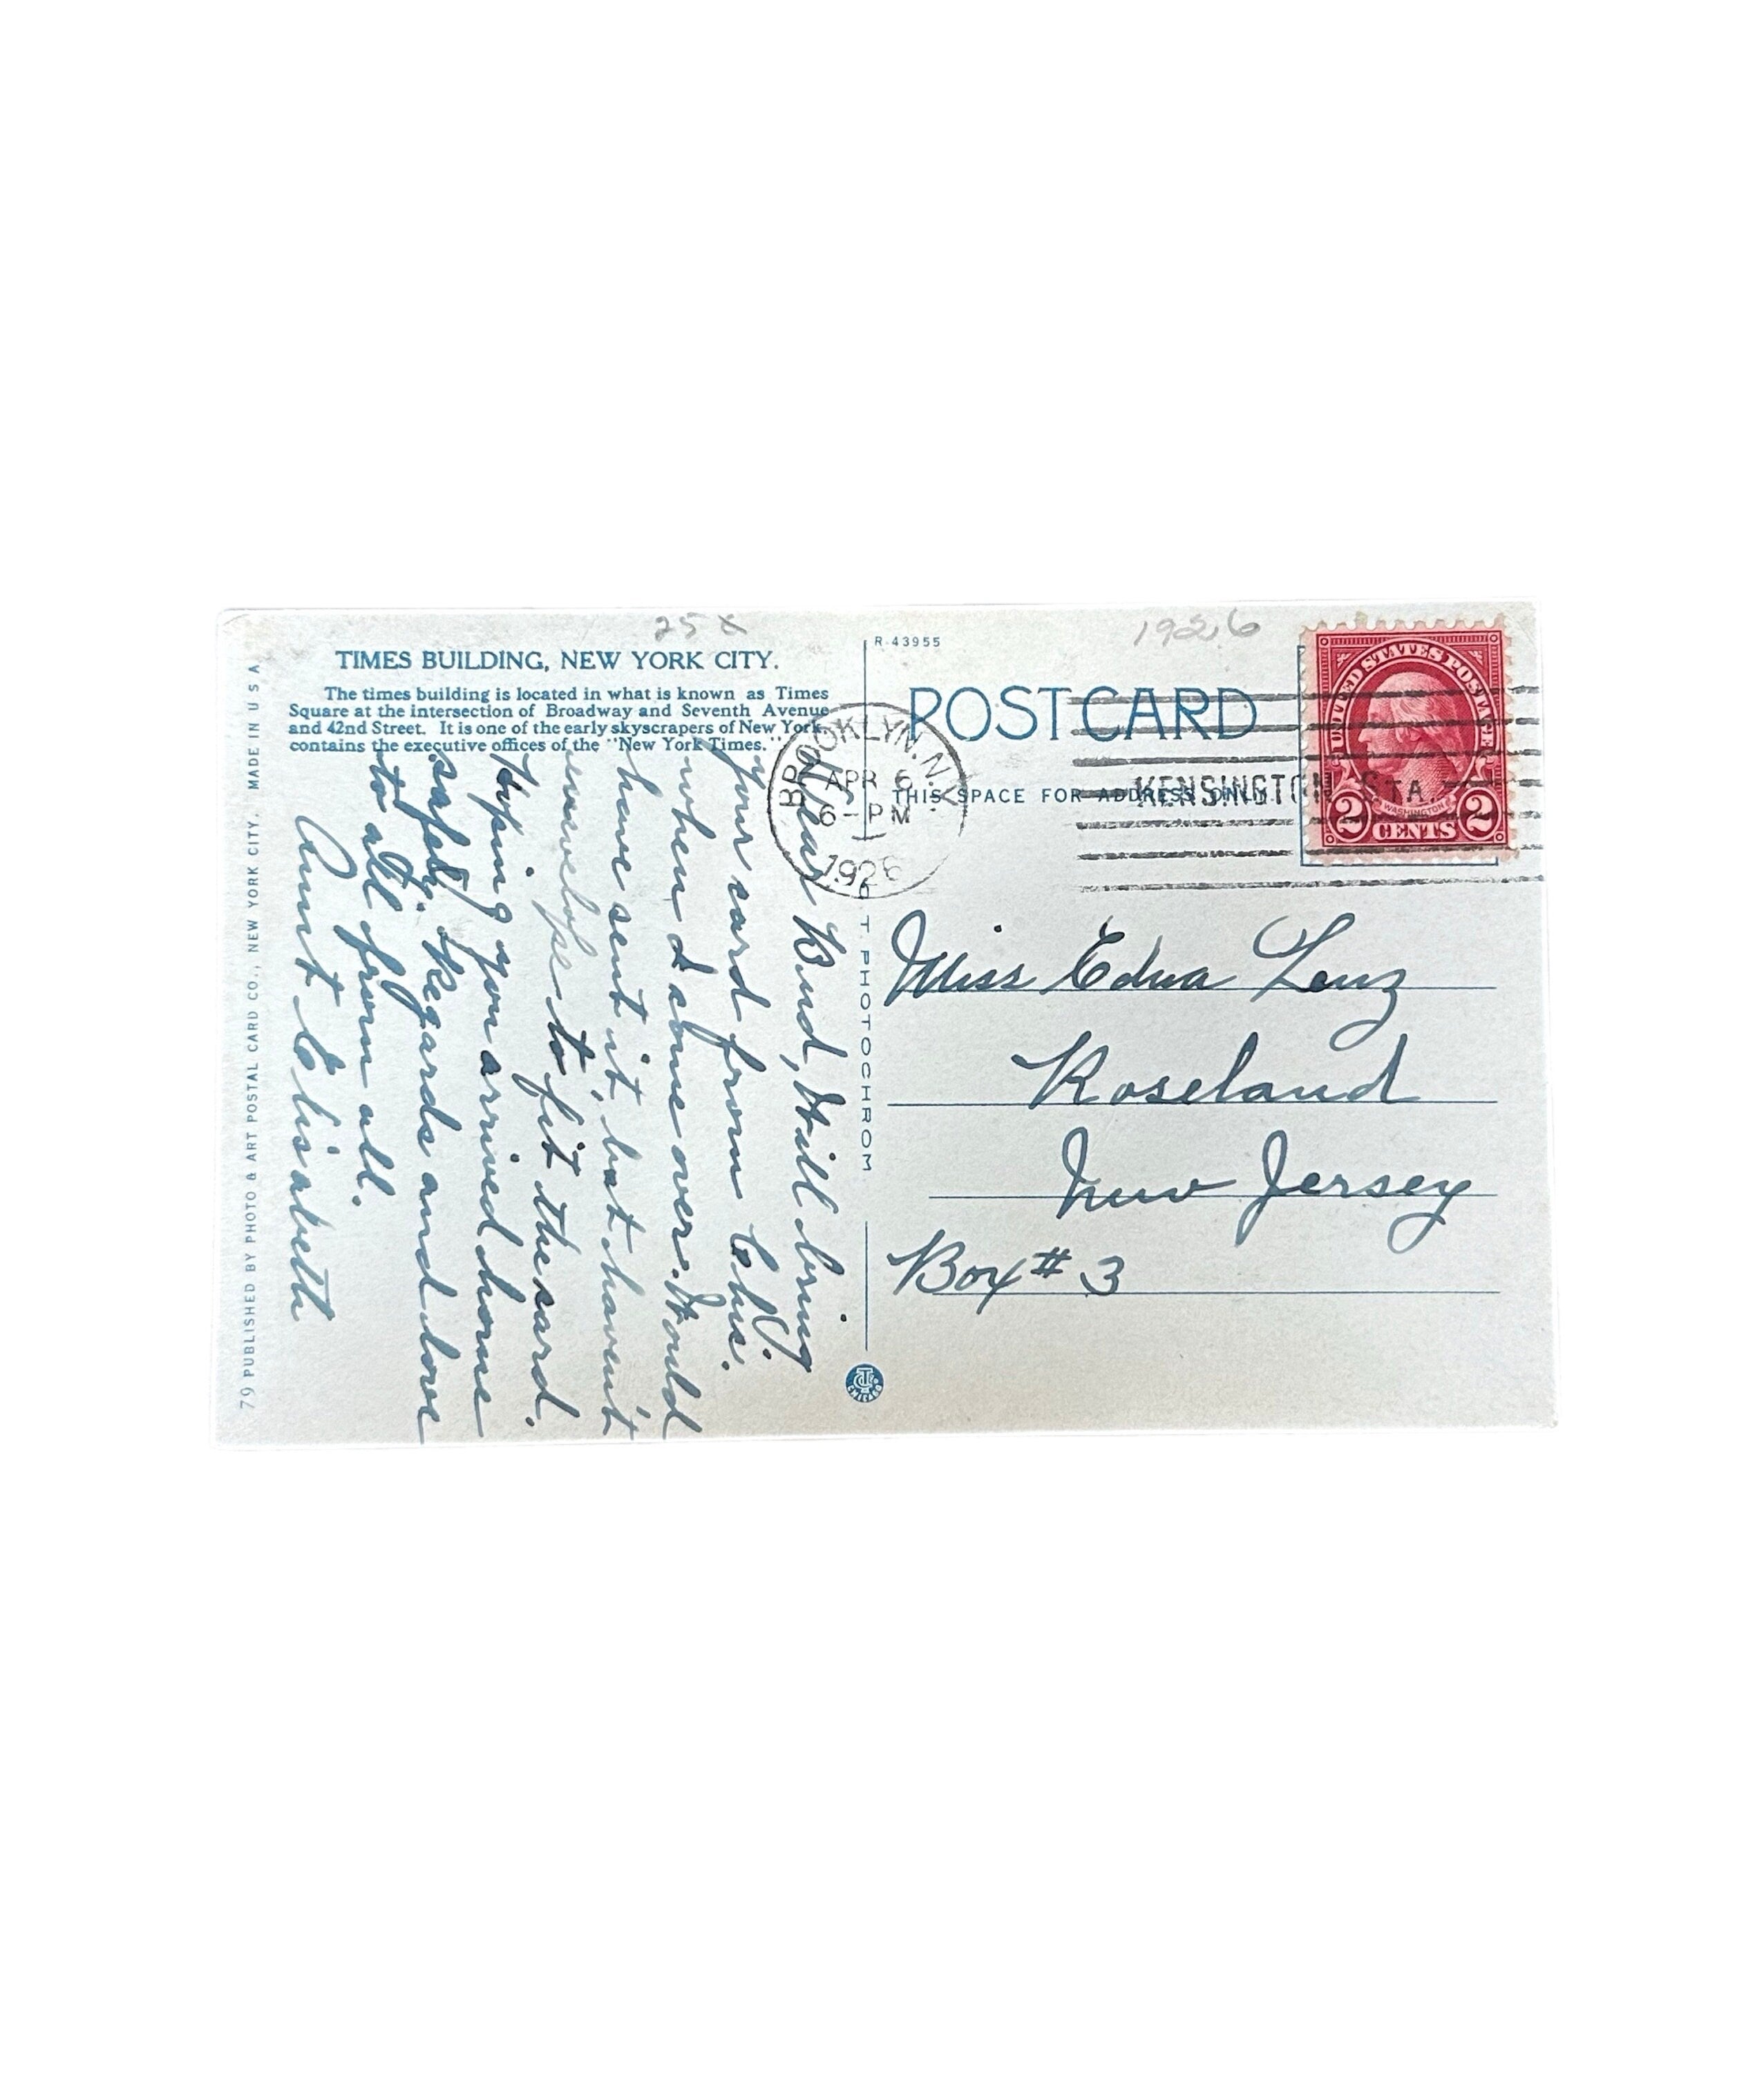 25¢
TIMES BUILDING, NEW YORK CITY.
The times building is located in what is known as Times
Square at the intersection of Broadway and Seventh Avenue
and 42nd Street. It is one of the early skyscrapers of New York,
contains the executive offices of the "New York Times."
Dear Kind, Will bring
your card from Chr.
when I come over. Would
have sent it, but haven't
envelope to fit the card.
Hoping you arrived home
safely. Regards and love
to all from all.
Aunt Elisabeth
79 PUBLISHED BY PHOTO & ART POSTAL CARD CO., NEW YORK CITY. MADE IN U S A
R-43955
1926
POST CARD
THIS SPACE FOR ADDRESS ONLY.
BROOKLYN, N.Y.
APR 6
6-PM
1926
KENSINGTON STA.
UNITED STATES POSTAGE
WASHINGTON
2 CENTS 2
C. T. PHOTOCHROM
CHICAGO
Miss Edna Lenz
Roseland
New Jersey
Box # 3